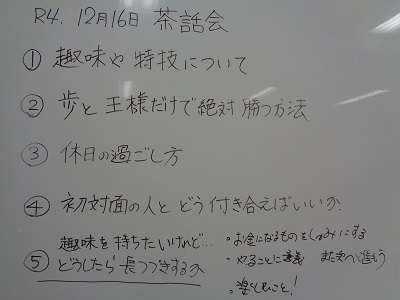 R4. 12月16日 茶話会
① 趣味や特技について
② 歩と王様だけで絶対勝つ方法
③ 休日の過ごし方
④ 初対面の人とどう付き合えばいいか
趣味を持ちたいけれど…
⑤ どうしたら長つづきするか
・お金になるものをしゅみにする
・やることに意義
・楽しむこと!